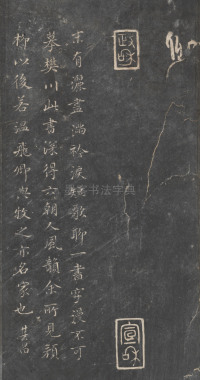 政和
宣和
末有灑盡滿衿淚短歌聊一書字漫不可
摹樊川此書深得六朝人風韻余所見顏
柳以後若溫飛卿與牧之亦名家也其昌
書法字典